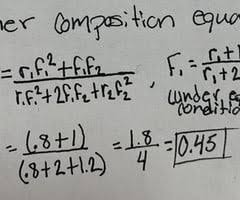 composition equa
= r₁f₁²+f₁f₂ / r₁f₁²+2f₁f₂+r₂f₂² , F₁ = r₁+1 / r₁+2
(under eq
conditio
= (.8+1) / (.8+2+1.2) = 1.8 / 4 = 0.45